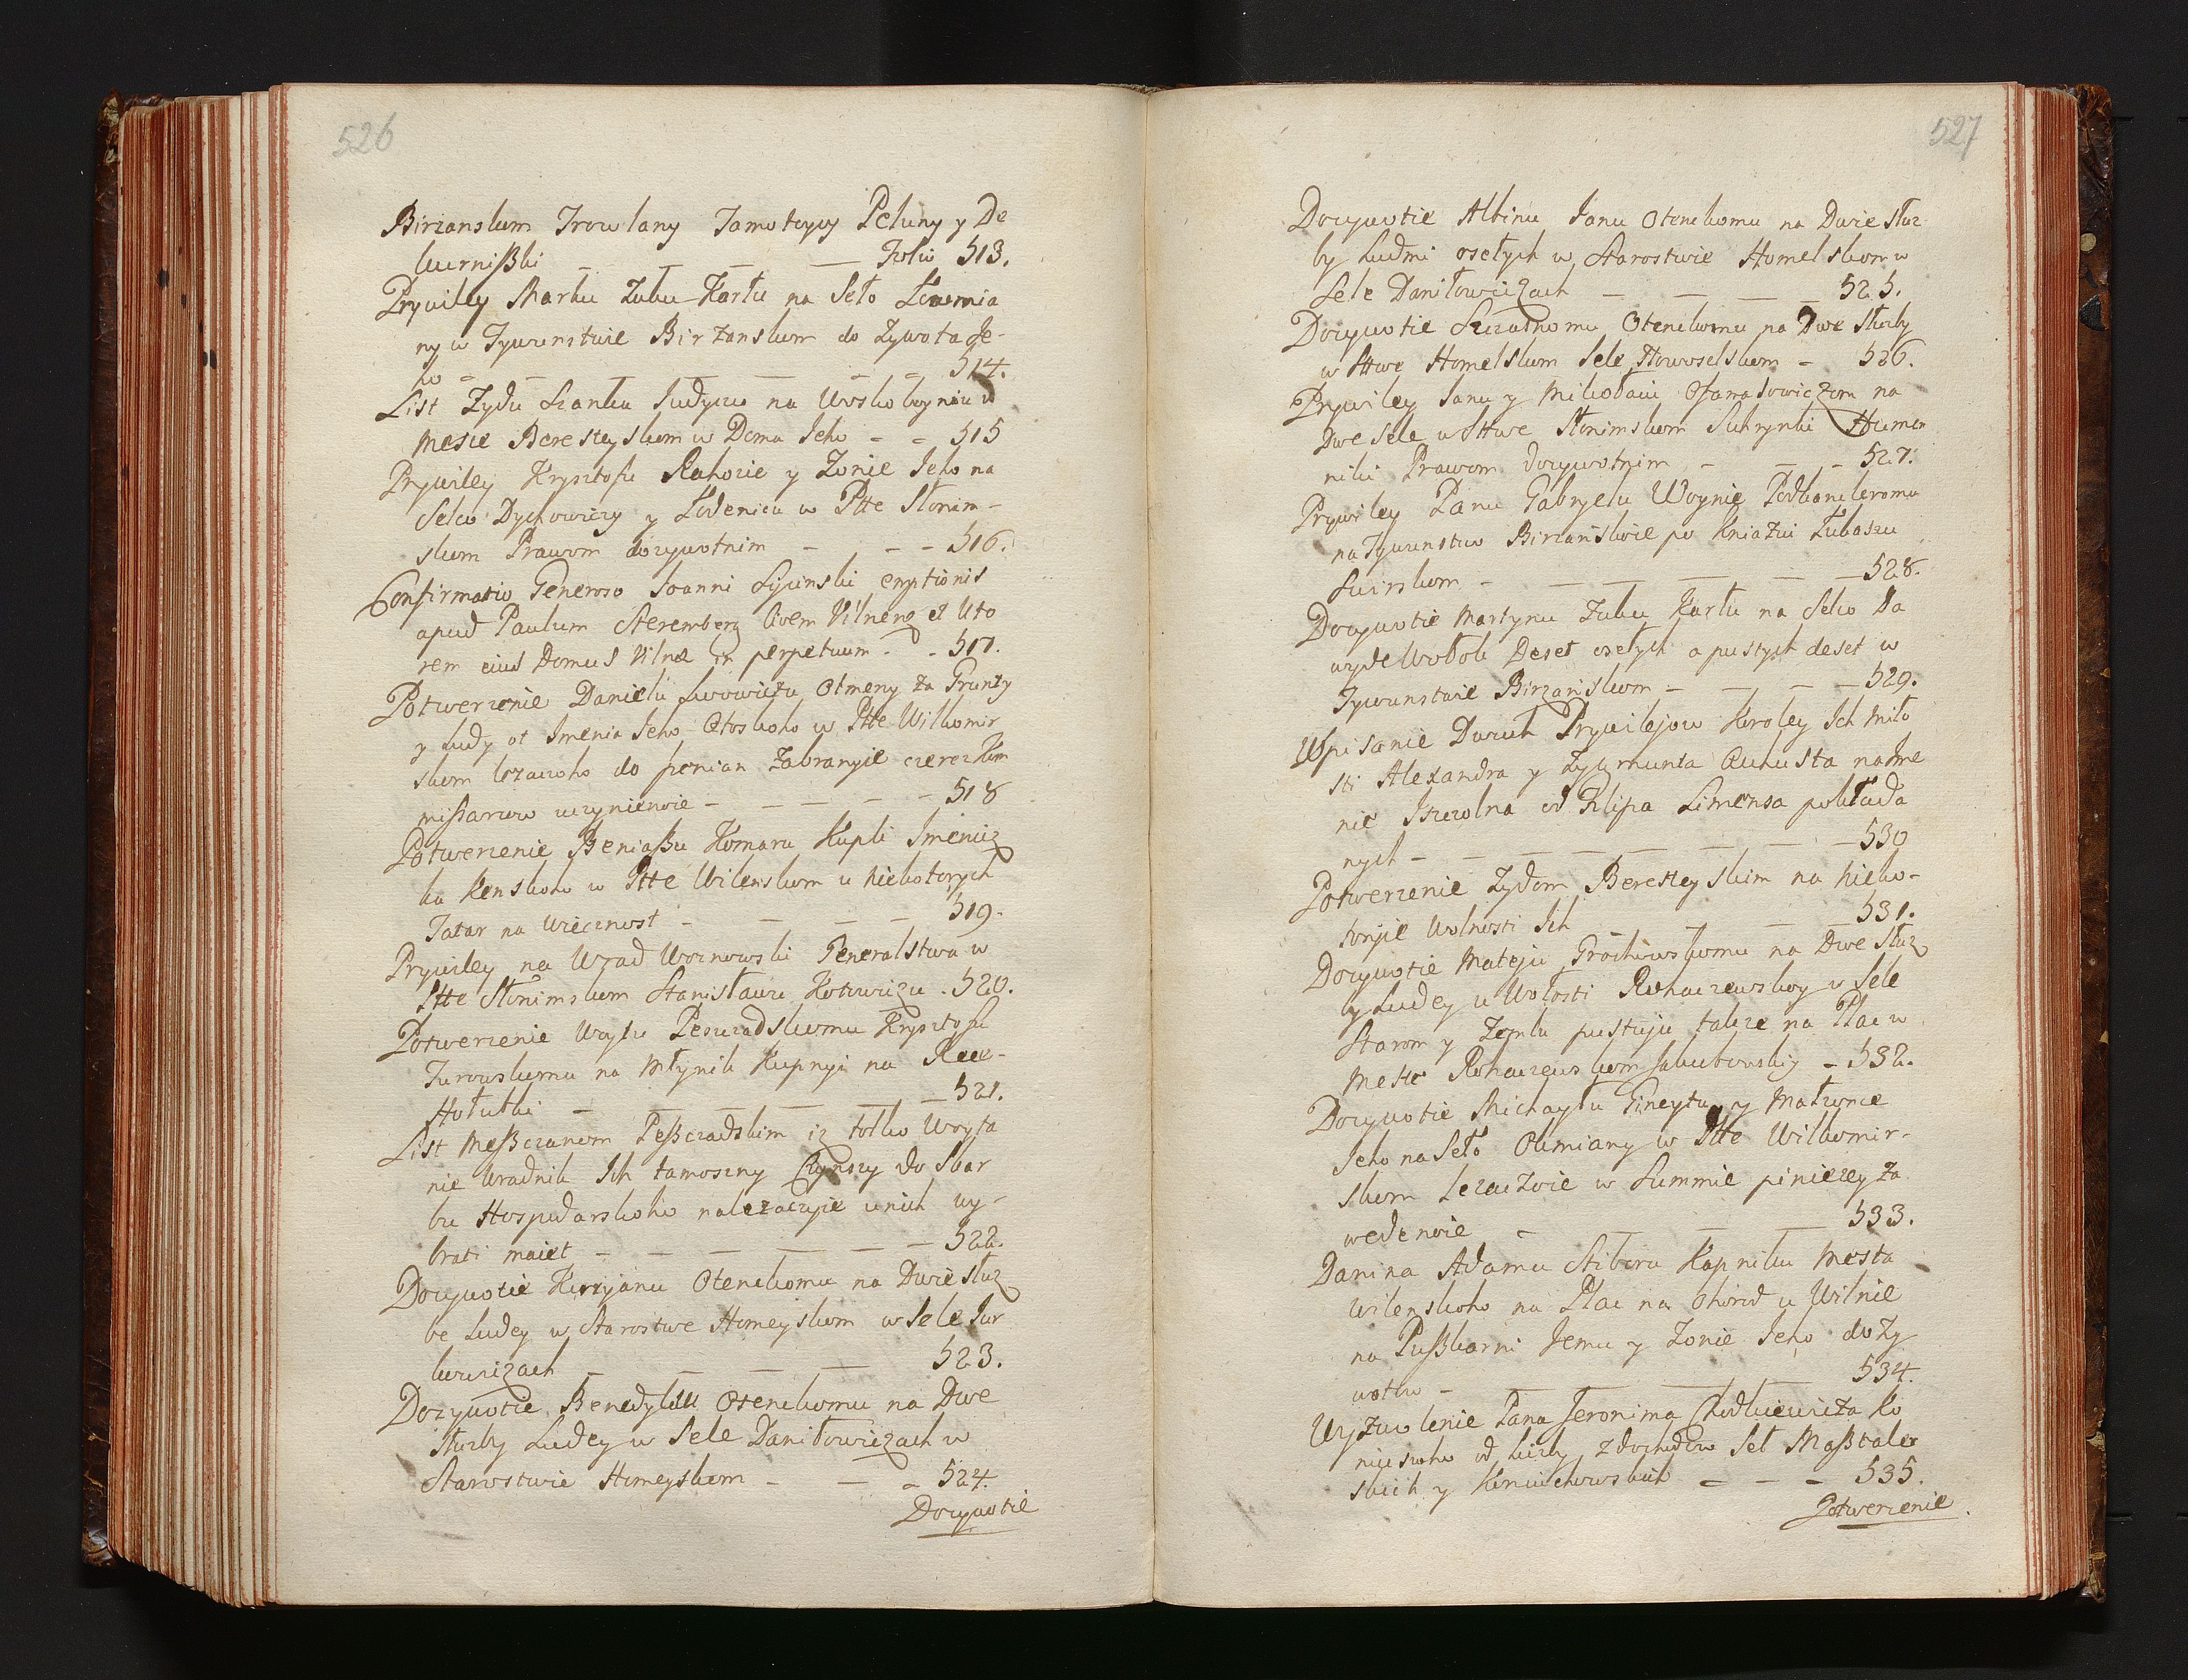 526
Birzanskom Trowlany Jamotcycy Peluny y De
kurnißki — — — — Folio 513.
Prywiley Marku Zubu Kartu na Seło
ny w Tywunstwie Birzanskom do Zywota Je-
ho — — — — — — 514.
List Zydu Szanku Judyczu na Woskoboyniu w
meste Beresteyskom w Domu Jeho — — 515
Prywiley Krysztofu Rahozie y Zonie Jeho na
Selco Dychowiczy y Lodenicu w Ptte Słonim-
skom Prawom dozywotnim — — — 516.
Confirmatio Generoso Joanni Lipinski emptionis
apud Paulum Steremberg Civem Vilnens et Uxo
rem eius Domus Vilnæ in perpetuum — . 517.
Potwerzenie Danielu Lwowiczu Otmeny za Grunty
y Ludy ot Imenia Jeho Otoskoho w Ptte Wilkomir
skom lezaczoho do penian Zabranyie czerez Kom
mißarow uczynienoie — — — — — 518
Potwerzenie Beniaßu Komaru Kupli Imenicz
ka Kenskoho w Ptte Wilenskom u niekotorych
Tatar na Wiecznost — — — — 519.
Prywiley na Urad Woznowski Generalstwa w
Ptte Słonimskom Stanisławu Kotowiczu . 520.
Potwerzenie Woytu Peszczadskomu Krysztofu
Turowskomu na Młynik Kupnyi na Rece-
Hołubki — — — — — — 521.
List Meßczanom Peßczadskim iz tolko Woyta
nie Uradnik Ich tamoszny Czynszy do Skar
bu Hospodarskoho nalezaczyie u nich wy-
brati maiet — — — — — — 522.
Dozywotie Kuryjanu Otenskomu na Dwie służ
be Ludey w Starostwe Homeyskom w Sele Jur
kowiczach — — — — 523.
Dozywotie Benedyktu Otenskomu na Dwe
Służby Ludey w Sele Daniłowiczach w
Starostwie Homeyskom — — — 524.
Dozywotie
527
Dozywotie Albinu Janu Otenskomu na Dwie służ
by Ludmi osełych w Starostwie Homelskom w
Sele Daniłowiczach — — — — 525.
Dozywotie Szczasnomu Otenskomu na Dwe Służby
w Sttwe Homelskom Sele Nowoselskom — 526.
Prywiley Janu y Mikołaiu Ofanasowiczom na
Dwe Sele w Sttwe Słonimskom Suhrynki Humen
niki Prawom dozywotnim — — — 527.
Prywiley Panu Gabryelu Woynie Podkancleromu
na Tywunstwo Birzanskoie po Kniazu Łukaszu
Swirskom — — — — — — 528.
Dozywotie Martynu Zubu Kartu na Selco Da
wyde Wołok Deset osełych a pustych deset w
Tywunstwie Birzanskom — — — — 529.
Wpisanie Dwuch Prywilejow Koroley Ich Miło
sti Alexandra y Zygmunta Auhusta na Ime
nie Iszczolna od Filipa Limonta pokłada
nych — — — — — — — 530
Potwerzenie Zydom Beresteyskim na nieko-
toryie Wolnosti Ich — — — 531.
Dozywotie Mateju Grochowskomu na Dwe Służ
by Ludey u Wołosti Rohaczewskoy w Sele
Starom y Zemlu pustuju takze na Plac w
Meste Rohaczewskom Jakubowskiy — 532.
Dozywotie Michayłu Gineytu y Małzonce
Jeho na Seło Okmiany w Ptte Wilkomir-
skom Lezaczoie w Summie pinieżey Za
wedenoie — — — 533.
Danina Adamu Stiboru Kapniku Mesta
Wilenskoho na Plac na Ohorod u Wilnie
na Pußkarni Jemu y Zonie Jeho do Zy
wotow — — — — — 534.
Wyzwolenie Pana Jeronima Chodkiewicza Ko
niuszoho od liczby z dochodow Seł Maßtaler
skich y Koniuchowskich — — — 535.
Potwerzenie.